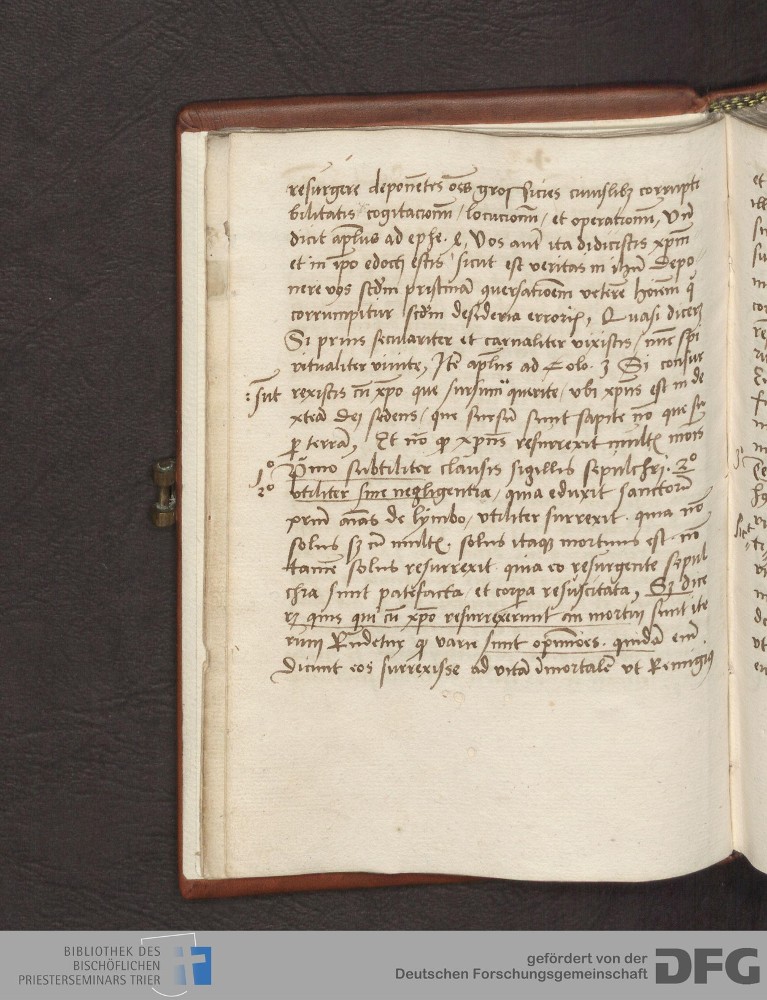 resurgere deponētes oēs grossicies cuiuslibz corrupti
bilitatis cogitacionū / locucionū / et operationū, Vn̄
dicit apłus ad ephe. 4, Vos aūt ita didicistis xp̄m
et in ip̄o edocti estis sicut est veritas in ihū Depo
nere vos scdm̄ pristinā ↄuersatioēm veterē hoīem q̄
corrumpitur scdm̄ desideria erroris, Quasi diceret
Si prius seculariter et carnaliter vixistis / nūc spi
ritualiter viuite, Itē apłus ad Colo. 3 Si consur
: sūt rexistis cū xp̄o que sursum querite / vbi xp̄us est in de
xtera dei sedens / que sursū sunt sapite nō que su
ꝑ terrā, Et nō ꝙ xp̄us resurrexit multis modis
1º Primo subtiliter clausis sigillis sepulchri. 2º
2º vtiliter sine negligentia / quia eduxit sanctorū
prīū aīas de lymbo / vtiliter surrexit. quia nō
solus sz cū multis. solus itaqz mortuus est. nō
tamē solus resurrexit. quia eo resurgente sepul
chra sunt patefacta / et corpa resuscitata, Sz dice
rz quis qui cū xp̄o resurrexerunt an mortui sunt ite
rum Rn̄detur ꝙ varie sunt opiniōes. quidā eni.
dicunt eos surrexisse ad vitā īmortalē vt Remigius
BIBLIOTHEK DES
BISCHÖFLICHEN
PRIESTERSEMINARS TRIER
gefördert von der
Deutschen Forschungsgemeinschaft DFG